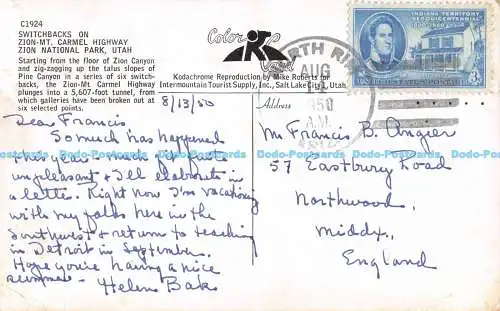 C1924
SWITCHBACKS ON
ZION-MT. CARMEL HIGHWAY
ZION NATIONAL PARK, UTAH
Starting from the floor of Zion Canyon
and zig-zagging up the talus slopes of
Pine Canyon in a series of six switch-
backs, the Zion-Mt. Carmel Highway
plunges into a 5,607-foot tunnel, from
which galleries have been broken out at
six selected points.
8/13/50
Dear Francis
So much has happened
this year and most
unpleasant & I'll elaborate in
a letter. Right now I'm vacationing
with my folks here in the
Southwest & return to teaching
in Detroit in September.
Hope you're having a nice
summer -
Helen Bak
Color
Card
Kodachrome Reproduction by Mike Roberts for
Intermountain Tourist Supply, Inc., Salt Lake City 1, Utah
Address
NORTH RIM
AUG
1950
A.M.
ARIZ.
INDIANA TERRITORY
SESQUICENTENNIAL
1800-1950
UNITED STATES POSTAGE
3¢
Mr Francis B. Angier
57 Eastbury Road
Northwood,
Middx,
England
www.betlastores.com